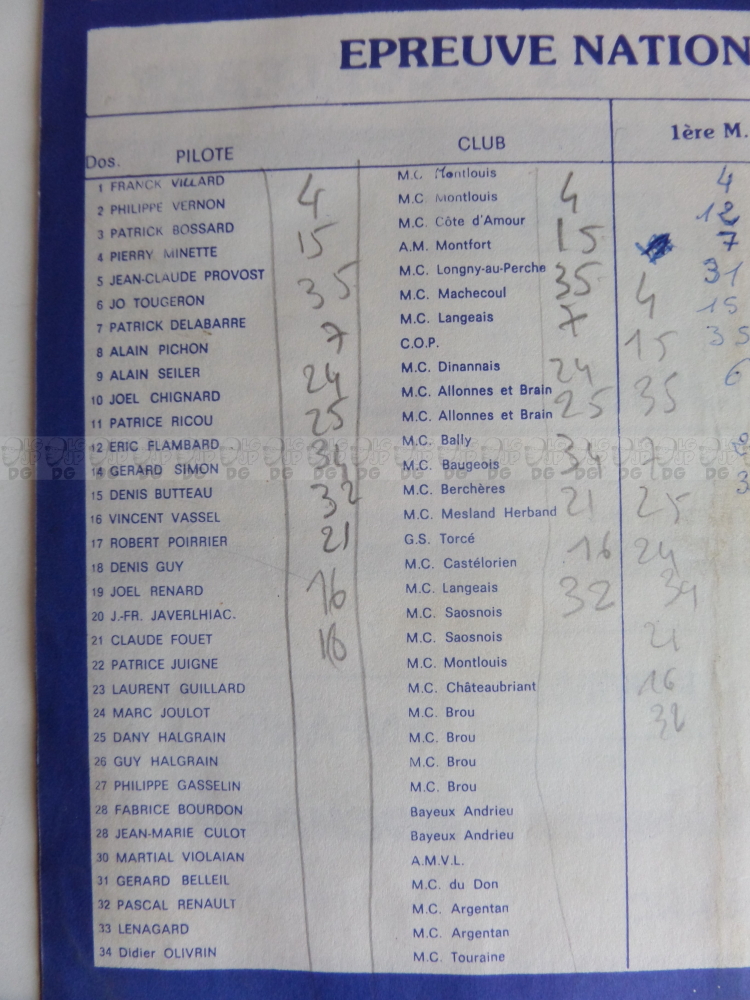 EPREUVE NATION
Dos. PILOTE CLUB 1ère M.
1 FRANCK VILLARD M.C. Montlouis
2 PHILIPPE VERNON M.C. Montlouis
3 PATRICK BOSSARD M.C. Côte d'Amour
4 PIERRY MINETTE A.M. Montfort
5 JEAN-CLAUDE PROVOST M.C. Longny-au-Perche
6 JO TOUGERON M.C. Machecoul
7 PATRICK DELABARRE M.C. Langeais
8 ALAIN PICHON C.O.P.
9 ALAIN SEILER M.C. Dinannais
10 JOEL CHIGNARD M.C. Allonnes et Brain
11 PATRICE RICOU M.C. Allonnes et Brain
12 ERIC FLAMBARD M.C. Bally
14 GERARD SIMON M.C. Baugeois
15 DENIS BUTTEAU M.C. Berchères
16 VINCENT VASSEL M.C. Mesland Herband
17 ROBERT POIRRIER G.S. Torcé
18 DENIS GUY M.C. Castélorien
19 JOEL RENARD M.C. Langeais
20 J.-FR. JAVERLHIAC. M.C. Saosnois
21 CLAUDE FOUET M.C. Saosnois
22 PATRICE JUIGNE M.C. Montlouis
23 LAURENT GUILLARD M.C. Châteaubriant
24 MARC JOULOT M.C. Brou
25 DANY HALGRAIN M.C. Brou
26 GUY HALGRAIN M.C. Brou
27 PHILIPPE GASSELIN M.C. Brou
28 FABRICE BOURDON Bayeux Andrieu
28 JEAN-MARIE CULOT Bayeux Andrieu
30 MARTIAL VIOLAIAN A.M.V.L.
31 GERARD BELLEIL M.C. du Don
32 PASCAL RENAULT M.C. Argentan
33 LENAGARD M.C. Argentan
34 Didier OLIVRIN M.C. Touraine
4
15
35
7
24
25
34
32
21
16
16
4
15
35
7
24
25
34
21
16
32
4
15
35
7
25
24
34
21
16
32
4
12
7
31
15
35
6